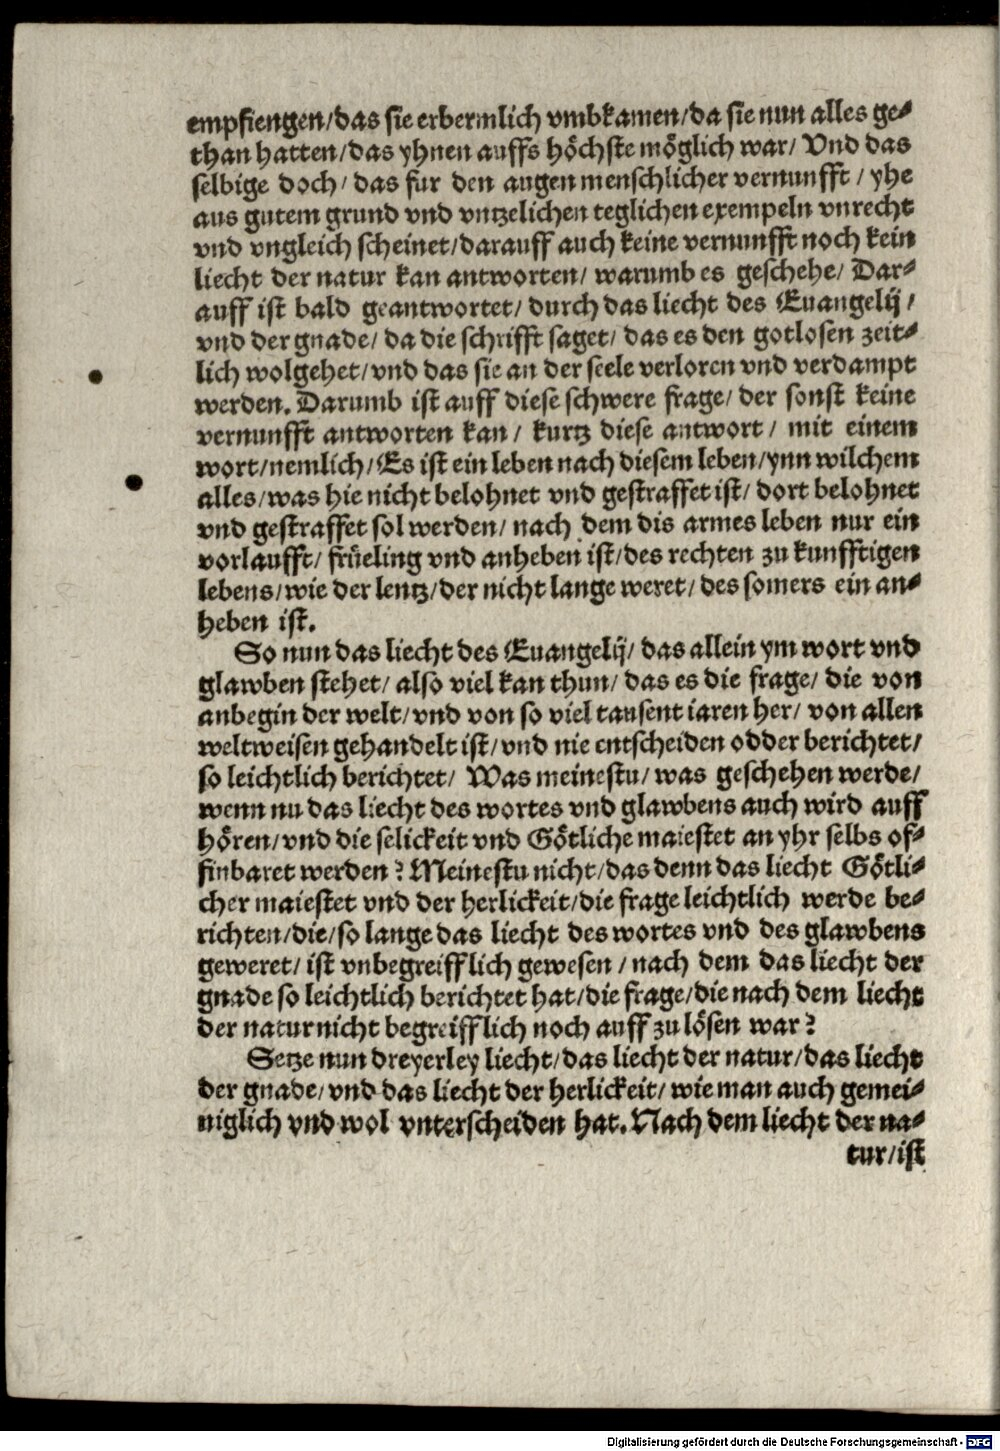 empfiengen/das sie erbermlich vmbkamen/da sie nun alles ge-
than hatten/das yhnen auffs höchste möglich war/ Vnd das
selbige doch/ das fur den augen menschlicher vernunfft / yhe
aus gutem grund vnd vntzelichen teglichen exempeln vnrecht
vnd vngleich scheinet/darauff auch keine vernunfft noch kein
liecht der natur kan antworten/ warumb es geschehe/ Dar-
auff ist bald geantwortet/ durch das liecht des Euangelij/
vnd der gnade/ da die schrifft saget/ das es den gotlosen zeit-
lich wolgehet/vnd das sie an der seele verloren vnd verdampt
werden. Darumb ist auff diese schwere frage/ der sonst keine
vernunfft antworten kan/ kurtz diese antwort/ mit einem
wort/nemlich/Es ist ein leben nach diesem leben/ynn wilchem
alles/was hie nicht belohnet vnd gestraffet ist/ dort belohnet
vnd gestraffet sol werden/ nach dem dis armes leben nur ein
vorlaufft/ früeling vnd anheben ist/des rechten zu kunfftigen
lebens/wie der lentz/der nicht lange weret/ des somers ein an-
heben ist.
So nun das liecht des Euangelij/ das allein ym wort vnd
glawben stehet/ also viel kan thun/ das es die frage/ die von
anbegin der welt/vnd von so viel tausent iaren her/ von allen
weltweisen gehandelt ist/vnd nie entscheiden odder berichtet/
so leichtlich berichtet/ Was meinestu/ was geschehen werde/
wenn nu das liecht des wortes vnd glawbens auch wird auff
hören/vnd die selickeit vnd Götliche maiestet an yhr selbs of-
finbaret werden? Meinestu nicht/das denn das liecht Götli-
cher maiestet vnd der herlickeit/die frage leichtlich werde be-
richten/die/so lange das liecht des wortes vnd des glawbens
geweret/ ist vnbegreifflich gewesen / nach dem das liecht der
gnade so leichtlich berichtet hat/die frage/die nach dem liecht
der natur nicht begreifflich noch auff zu lösen war?
Setze nun dreyerley liecht/das liecht der natur/das liecht
der gnade/vnd das liecht der herlickeit/ wie man auch gemei-
niglich vnd wol vnterscheiden hat. Nach dem liecht der na-
tur/ist
Digitalisierung gefördert durch die Deutsche Forschungsgemeinschaft - DFG